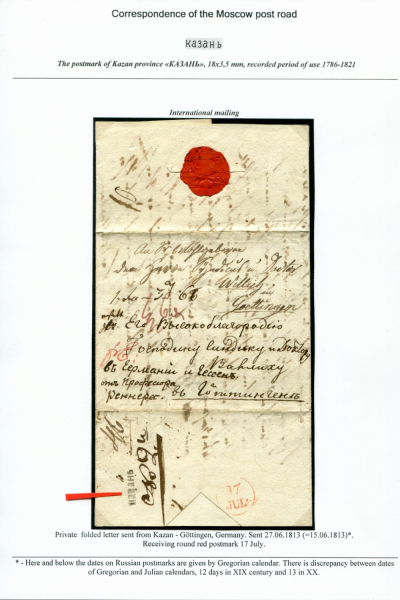 Correspondence of the Moscow post road
казань
The postmark of Kazan province «КАЗАНЬ», 18x3,5 mm, recorded period of use 1786-1821
International mailing
An
Willich
in
Goettingen
Его Высокоблагородію
Господину Синдику и
въ Германіи и
отъ Профессора
Реннера. въ Гёттингенъ
казань
17
JUL.
Private folded letter sent from Kazan - Göttingen, Germany. Sent 27.06.1813 (=15.06.1813)*.
Receiving round red postmark 17 July.
* - Here and below the dates on Russian postmarks are given by Gregorian calendar. There is discrepancy between dates
of Gregorian and Julian calendars, 12 days in XIX century and 13 in XX.